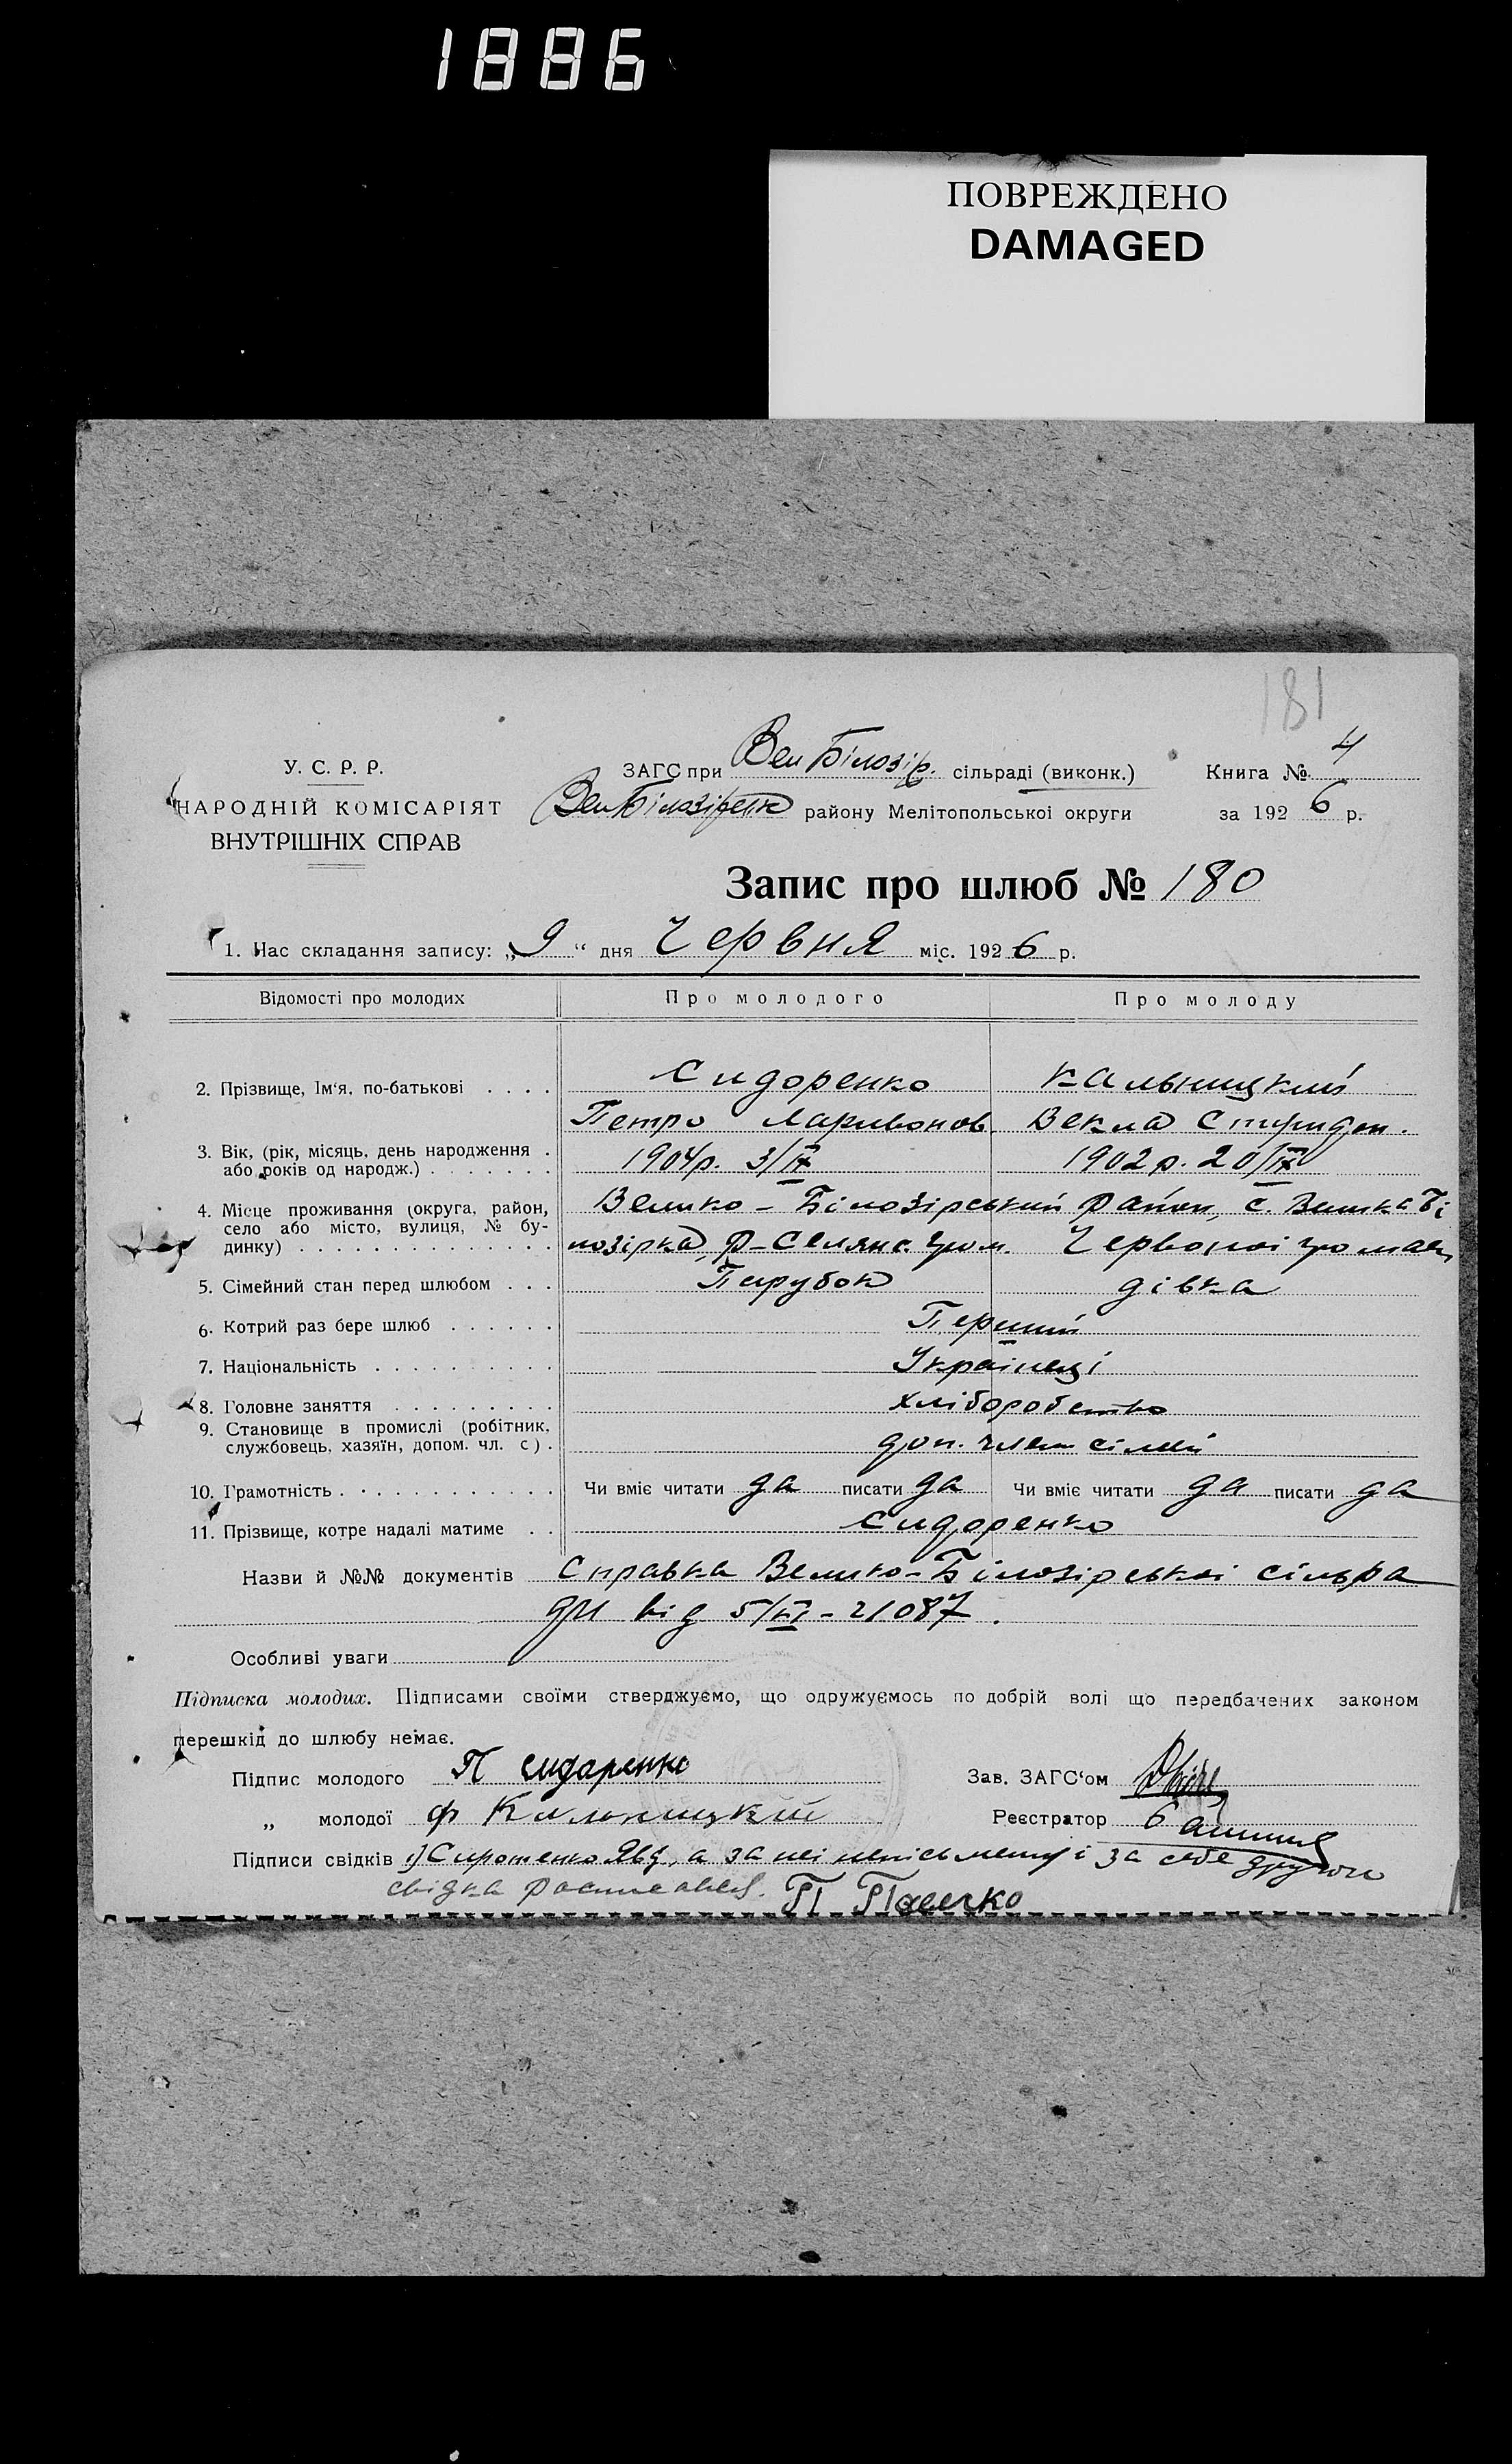 1886
ПОВРЕЖДЕНО
DAMAGED
181
У. С. Р. Р.
НАРОДНІЙ КОМІСАРІЯТ
ВНУТРІШНІХ СПРАВ
ЗАГС при Вел Білозір. сільраді (виконк.)
Вел Білозірськ району Мелітопольської округи
Книга № 4
за 1926 р.
Запис про шлюб № 180
1. Час складання запису: „9“ дня Червня міс. 1926 р.
Відомості про молодих Про молодого Про молоду
2. Прізвище, Ім'я, по-батькові . . . . Сидоренко Кальницкий
Петро Ларивонов. Векла Спиридон.
3. Вік, (рік, місяць, день народження . 1904р. 3/IX 1902 р. 20/IX
або років од народж.) . . . . . . .
4. Місце проживання (округа, район, Велико-Білозірський район, с. Велика Бі
село або місто, вулиця, № бу-
динку) . . . . . . . . . . . . . . лозірка, Р-Селянс. гром. Червоної громади
5. Сімейний стан перед шлюбом . . . Парубок дівка
6. Котрий раз бере шлюб . . . . . . Перший
7. Національність . . . . . . . . . . Українці
8. Головне заняття . . . . . . . . . хліборобство
9. Становище в промислі (робітник,
службовець, хазяїн, допом. чл. с.) . доп. член сімей
10. Грамотність . . . . . . . . . . . . Чи вміє читати да писати да Чи вміє читати да писати да
11. Прізвище, котре надалі матиме . . Сидоренко
Назви й №№ документів Справка Велико-Білозірської сільра
ди від 5/VI-21087.
Особливі уваги
Підписка молодих. Підписами своїми стверджуємо, що одружуємось по добрій волі що передбачених законом
перешкід до шлюбу немає.
Підпис молодого П Сидаренко Зав. ЗАГС'ом
„ молодої Ф Калницкій Реєстратор
Підписи свідків 1) Сиротенко Явд, а за неї неписьменну і за себе другои
свідка росписався. П